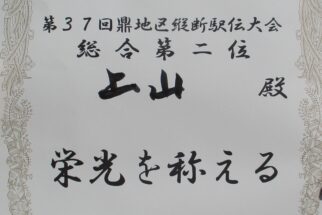 第37回鼎地区縦断駅伝大会
総合第二位
上山 殿
栄光を称える